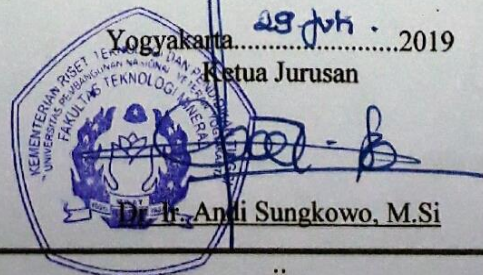 Yogyakarta 29 Juli . 2019
Ketua Jurusan
KEMENTERIAN RISET TEKNOLOGI DAN PENDIDIKAN
UNIVERSITAS PEMBANGUNAN NASIONAL VETERAN
FAKULTAS TEKNOLOGI MINERAL
Dr. Ir. Andi Sungkowo, M.Si